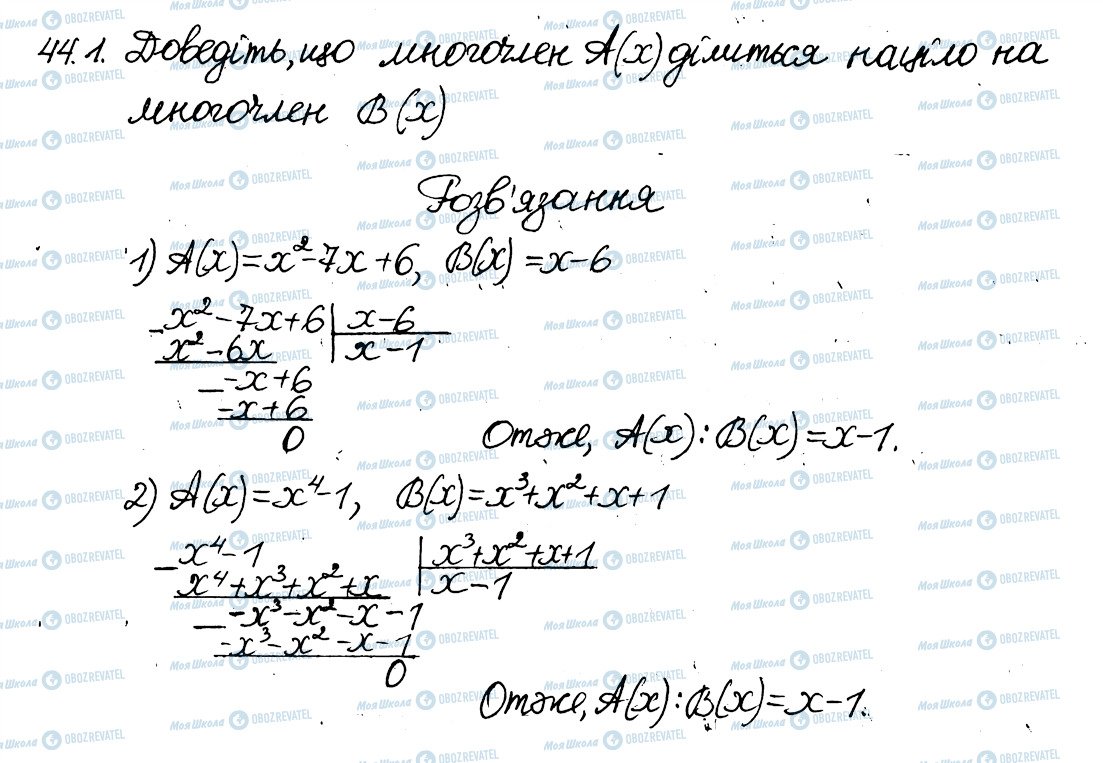 44.1. Доведіть, що многочлен A(x) ділиться націло на
многочлен B(x)
Розв'язання
1) A(x)=x²-7x+6, B(x)=x-6
-x²-7x+6|x-6
x²-6x |x-1
--x+6
-x+6
0
Отже, A(x):B(x)=x-1.
2) A(x)=x⁴-1, B(x)=x³+x²+x+1
-x⁴-1 |x³+x²+x+1
x⁴+x³+x²+x |x-1
--x³-x²-x-1
-x³-x²-x-1
0
Отже, A(x):B(x)=x-1.
МояШкола OBOZREVATEL